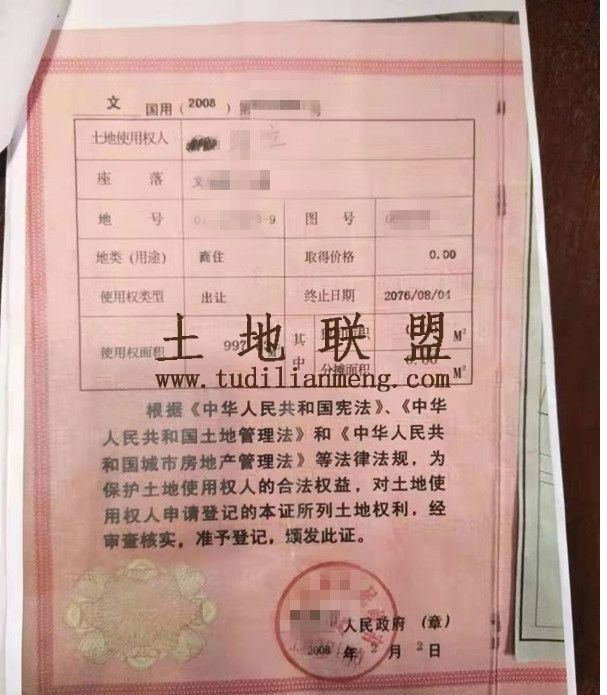 文 国用（2008）第 号
土地使用权人
座 落 文
地 号 3-9 图 号
地类（用途） 商住 取得价格 0.00
使用权类型 出让 终止日期 2076/08/04
使用权面积 997 M² 其中 面积 M²
分摊面积 0.00 M²
土地联盟
www.tudilianmeng.com
根据《中华人民共和国宪法》、《中华
人民共和国土地管理法》和《中华人民共
和国城市房地产管理法》等法律法规，为
保护土地使用权人的合法权益，对土地使
用权人申请登记的本证所列土地权利，经
审查核实，准予登记，颁发此证。
人民政府（章）
2008 年 2 月 2 日